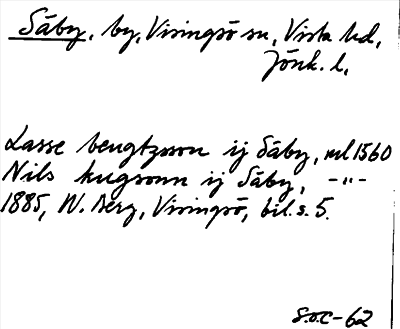 Säby, by, Visingsö sn, Vista hd,
Jönk. l,
Lasse bengtzson ij Säby, ml 1560
Nils hugsonn ij Säby, -"-
1885, W. Berg, Visingsö, bil. s. 5.
S.O.C-62